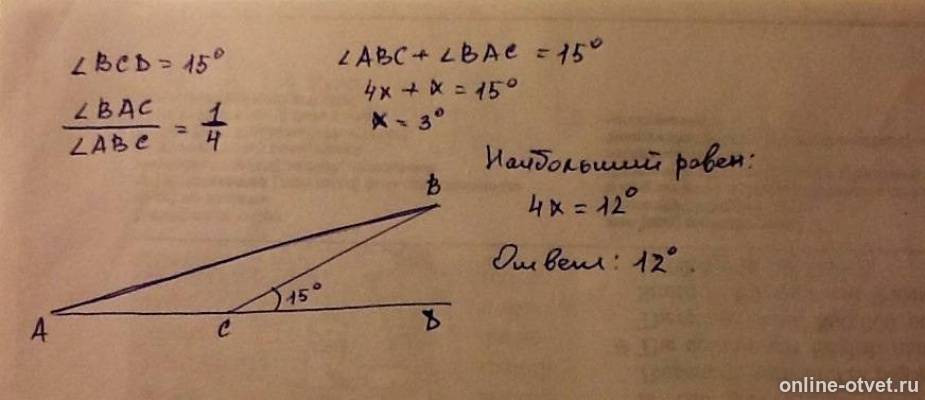 ∠BCD = 15°
∠BAC / ∠ABC = 1/4
∠ABC + ∠BAC = 15°
4x + x = 15°
x = 3°
Наибольший равен:
4x = 12°
Ответ: 12°.
B
15°
A
C
D
online-otvet.ru